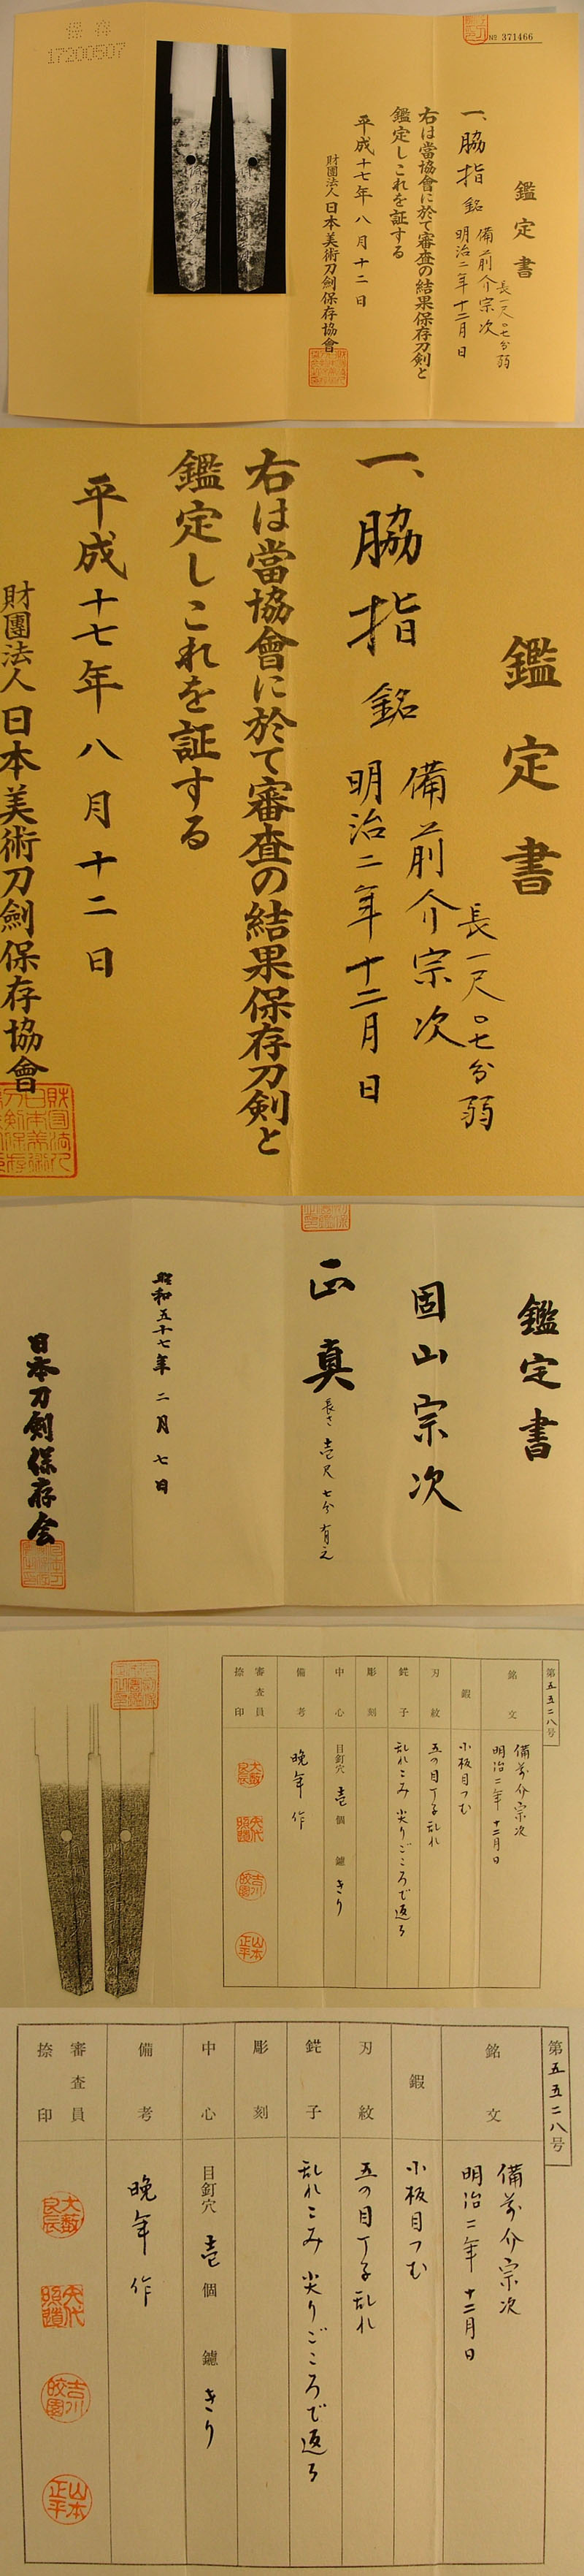 保存
17200507
№ 371466
鑑定書
一、脇指 銘 備前介宗次
明治二年十二月日
長一尺〇七分弱
右は當協會に於て審査の結果保存刀剣と
鑑定しこれを証する
平成十七年八月十二日
財團法人日本美術刀劍保存協會
鑑定書
一、脇指 銘 備前介宗次
明治二年十二月日
長一尺〇七分弱
右は當協會に於て審査の結果保存刀剣と
鑑定しこれを証する
平成十七年八月十二日
財團法人日本美術刀劍保存協會
鑑定書
固山宗次
正真
長さ壱尺七分有之
昭和五十七年二月七日
日本刀剣保存会
第五五二八号
銘文 備前介宗次
明治二年十二月日
鍜 小板目つむ
刃紋 五の目丁子乱れ
鋩子 乱れこみ尖りごころで返る
彫刻
中心 目釘穴 壱個 鑢 きり
備考 晩年作
審査員
捺印
第五五二八号
銘文 備前介宗次
明治二年十二月日
鍜 小板目つむ
刃紋 五の目丁子乱れ
鋩子 乱れこみ尖りごころで返る
彫刻
中心 目釘穴 壱個 鑢 きり
備考 晩年作
審査員
捺印
吉川
皎園
山本
正平